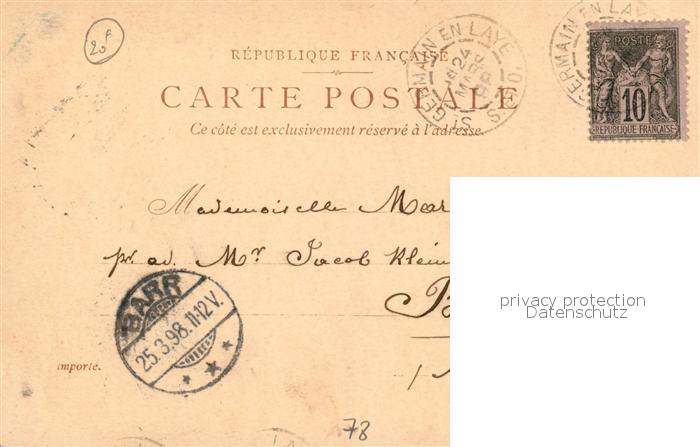 20f
RÉPUBLIQUE FRANÇAISE
CARTE POSTALE
Ce côté est exclusivement réservé à l'adresse.
ST GERMAIN EN LAYE
24
MARS
GERMAIN EN LAYE
POSTE
10
REPUBLIQUE FRANÇAISE
Mademoiselle Mar
pr. ad. Mr Jacob Klein
B
BARR
25.3.98.11-12V.
privacy protection
Datenschutz
importe.
78